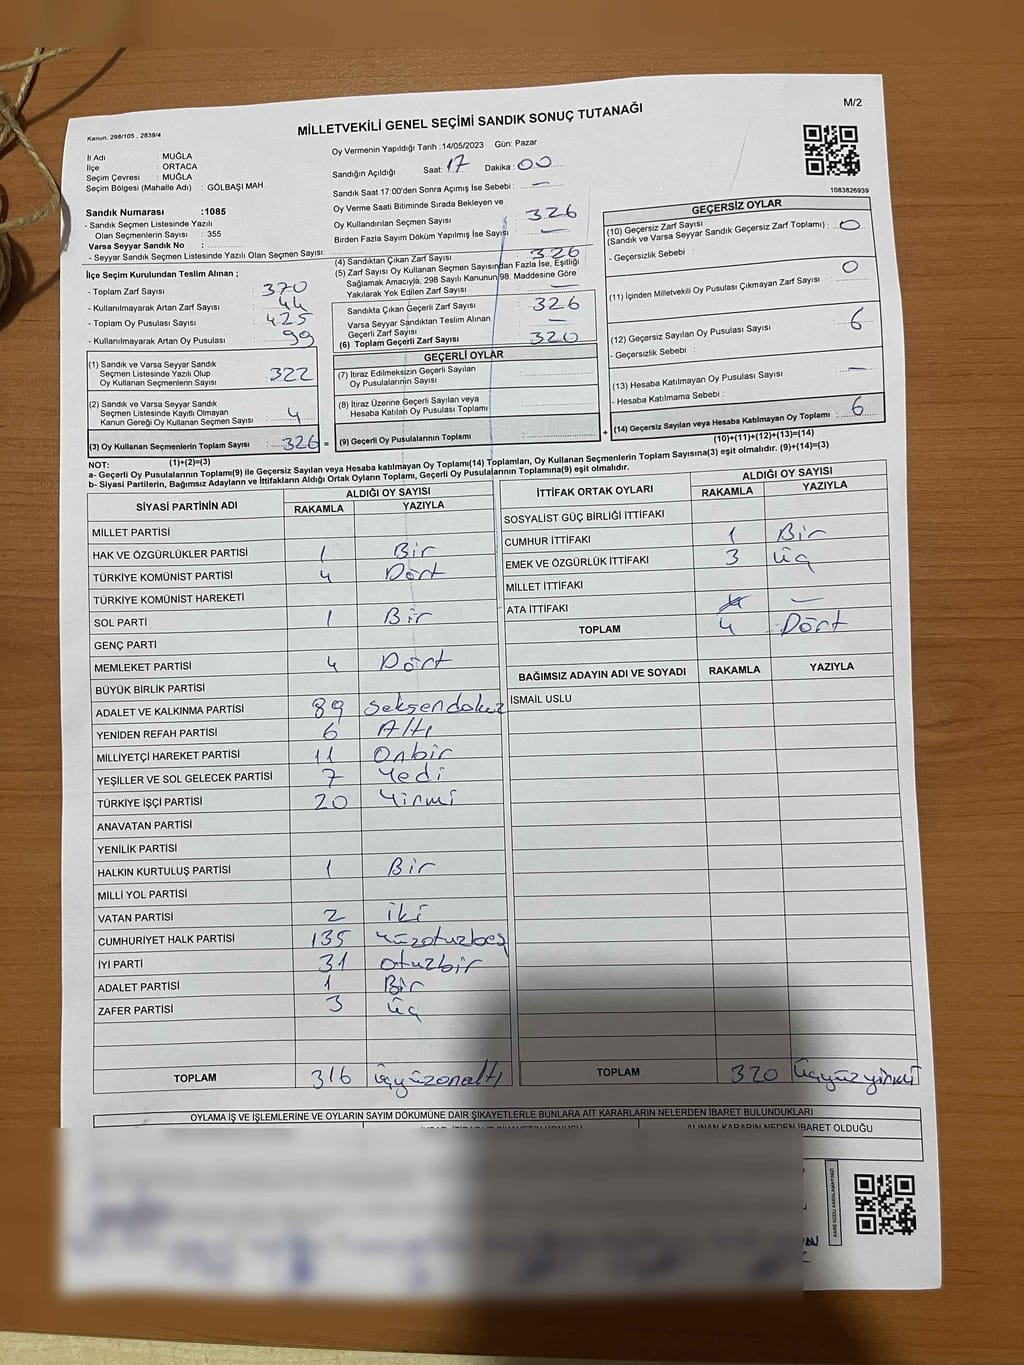 M/2
Kanun. 298/105 , 2839/4
MİLLETVEKİLİ GENEL SEÇİMİ SANDIK SONUÇ TUTANAĞI
İl Adı : MUĞLA
İlçe : ORTACA
Seçim Çevresi : MUĞLA
Seçim Bölgesi (Mahalle Adı) : GÖLBAŞI MAH.
Sandık Numarası :1085
- Sandık Seçmen Listesinde Yazılı
Olan Seçmenlerin Sayısı : 355
Varsa Seyyar Sandık No :
- Seyyar Sandık Seçmen Listesinde Yazılı Olan Seçmen Sayısı:
İlçe Seçim Kurulundan Teslim Alınan ;
- Toplam Zarf Sayısı : 370
- Kullanılmayarak Artan Zarf Sayısı : 44
- Toplam Oy Pusulası Sayısı : 425
- Kullanılmayarak Artan Oy Pusulası : 99
(1) Sandık ve Varsa Seyyar Sandık
Seçmen Listesinde Yazılı Olup
Oy Kullanan Seçmenlerin Sayısı : 322
(2) Sandık ve Varsa Seyyar Sandık
Seçmen Listesinde Kayıtlı Olmayan
Kanun Gereği Oy Kullanan Seçmen Sayısı : 4
(3) Oy Kullanan Seçmenlerin Toplam Sayısı : 326 =
(1)+(2)=(3)
Oy Vermenin Yapıldığı Tarih :14/05/2023 Gün: Pazar
Sandığın Açıldığı Saat: 17 Dakika : 00
Sandık Saat 17:00'den Sonra Açımış İse Sebebi : —
Oy Verme Saati Bitiminde Sırada Bekleyen ve
Oy Kullandırılan Seçmen Sayısı : 326
Birden Fazla Sayım Döküm Yapılmış İse Sayısı : —
(4) Sandıktan Çıkan Zarf Sayısı : 326
(5) Zarf Sayısı Oy Kullanan Seçmen Sayısından Fazla İse, Eşitliği
Sağlamak Amacıyla, 298 Sayılı Kanunun 98. Maddesine Göre
Yakılarak Yok Edilen Zarf Sayısı : —
Sandıkta Çıkan Geçerli Zarf Sayısı : 326
Varsa Seyyar Sandıktan Teslim Alınan
Geçerli Zarf Sayısı : —
(6) Toplam Geçerli Zarf Sayısı : 320
GEÇERLİ OYLAR
(7) İtiraz Edilmeksizin Geçerli Sayılan
Oy Pusulalarının Sayısı :
(8) İtiraz Üzerine Geçerli Sayılan veya
Hesaba Katılan Oy Pusulası Toplamı :
(9) Geçerli Oy Pusulalarının Toplamı : +
1083826939
GEÇERSİZ OYLAR
(10) Geçersiz Zarf Sayısı
(Sandık ve Varsa Seyyar Sandık Geçersiz Zarf Toplamı) : 0
- Geçersizlik Sebebi :
(11) İçinden Milletvekili Oy Pusulası Çıkmayan Zarf Sayısı : 0
(12) Geçersiz Sayılan Oy Pusulası Sayısı : 6
- Geçersizlik Sebebi :
(13) Hesaba Katılmayan Oy Pusulası Sayısı : —
- Hesaba Katılmama Sebebi :
(14) Geçersiz Sayılan veya Hesaba Katılmayan Oy Toplamı : 6
(10)+(11)+(12)+(13)=(14)
NOT:
a- Geçerli Oy Pusulalarının Toplamı(9) ile Geçersiz Sayılan veya Hesaba katılmayan Oy Toplamı(14) Toplamları, Oy Kullanan Seçmenlerin Toplam Sayısına(3) eşit olmalıdır. (9)+(14)=(3)
b- Siyasi Partilerin, Bağımsız Adayların ve İttifakların Aldığı Ortak Oyların Toplamı, Geçerli Oy Pusulalarının Toplamına(9) eşit olmalıdır.
SİYASİ PARTİNİN ADI ALDIĞI OY SAYISI
RAKAMLA YAZIYLA
MİLLET PARTİSİ
HAK VE ÖZGÜRLÜKLER PARTİSİ 1 Bir
TÜRKİYE KOMÜNİST PARTİSİ 4 Dört
TÜRKİYE KOMÜNİST HAREKETİ
SOL PARTİ 1 Bir
GENÇ PARTİ
MEMLEKET PARTİSİ 4 Dört
BÜYÜK BİRLİK PARTİSİ
ADALET VE KALKINMA PARTİSİ 89 seksendokuz
YENİDEN REFAH PARTİSİ 6 Altı
MİLLİYETÇİ HAREKET PARTİSİ 11 Onbir
YEŞİLLER VE SOL GELECEK PARTİSİ 7 Yedi
TÜRKİYE İŞÇİ PARTİSİ 20 Yirmi
ANAVATAN PARTİSİ
YENİLİK PARTİSİ
HALKIN KURTULUŞ PARTİSİ 1 Bir
MİLLİ YOL PARTİSİ
VATAN PARTİSİ 2 iki
CUMHURİYET HALK PARTİSİ 135 Yüzotuzbeş
İYİ PARTİ 31 otuzbir
ADALET PARTİSİ 1 Bir
ZAFER PARTİSİ 3 üç
TOPLAM 316 üçyüzonaltı
İTTİFAK ORTAK OYLARI ALDIĞI OY SAYISI
RAKAMLA YAZIYLA
SOSYALİST GÜÇ BİRLİĞİ İTTİFAKI
CUMHUR İTTİFAKI 1 Bir
EMEK VE ÖZGÜRLÜK İTTİFAKI 3 üç
MİLLET İTTİFAKI
ATA İTTİFAKI —
TOPLAM 4 Dört
BAĞIMSIZ ADAYIN ADI VE SOYADI RAKAMLA YAZIYLA
İSMAİL USLU
TOPLAM 320 üçyüzyirmi
OYLAMA İŞ VE İŞLEMLERİNE VE OYLARIN SAYIM DÖKÜMÜNE DAİR ŞİKAYETLERLE BUNLARA AİT KARARLARIN NELERDEN İBARET BULUNDUKLARI
ALINAN KARARIN NEDEN İBARET OLDUĞU